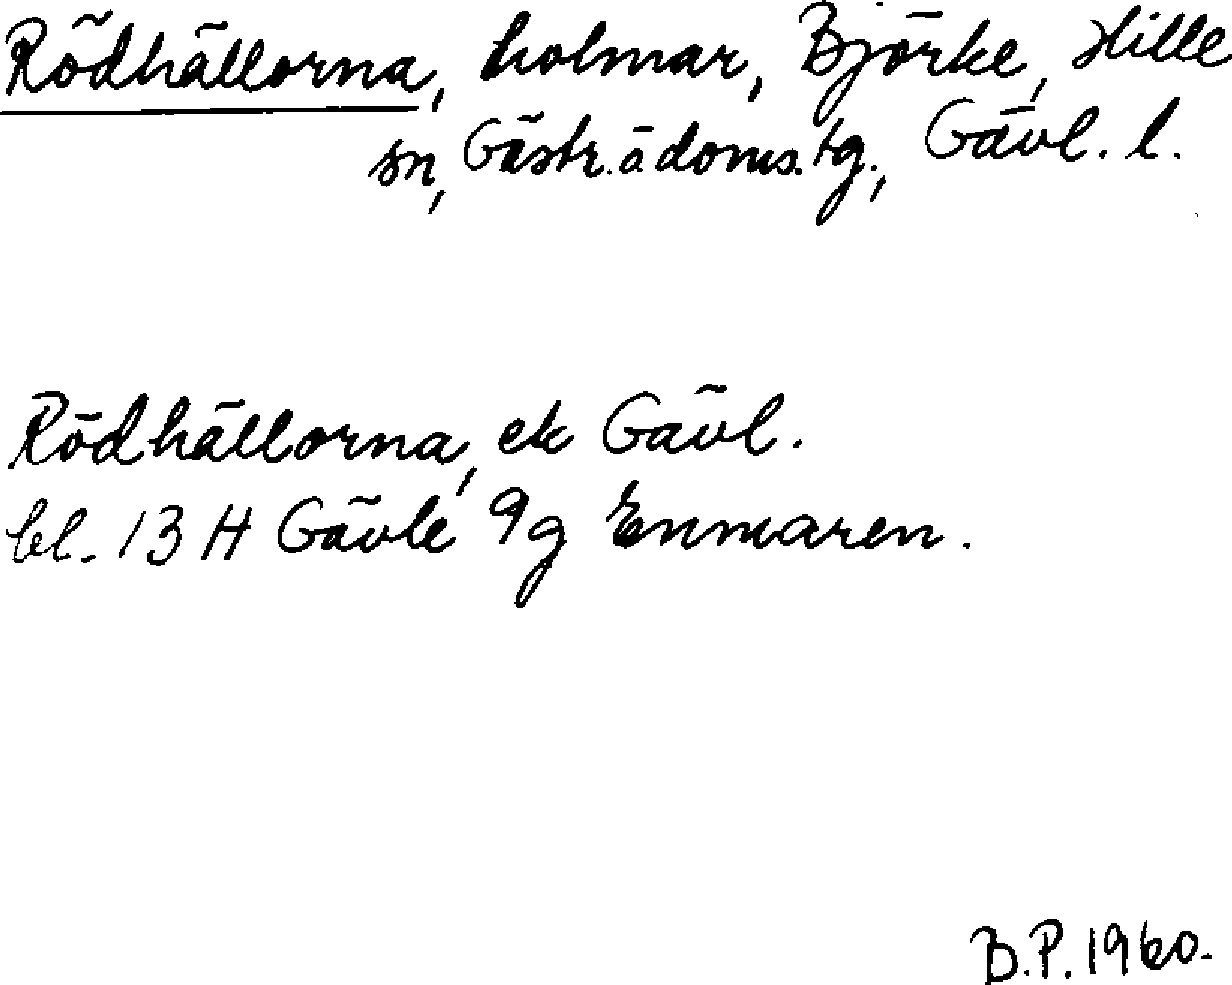 Rödhällorna, holmar, Björke, Hille
sn, Gästr. ö. doms. tg., Gävl. l.
Rödhällorna, ek Gävl.
bl. 13 H Gävle 9g Enmaren.
B.P. 1960.